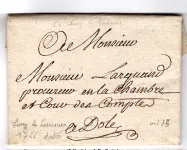 A Monsieur
Monsieur Larquand
procureur en la Chambre
et Cour des Comptes
a Dole